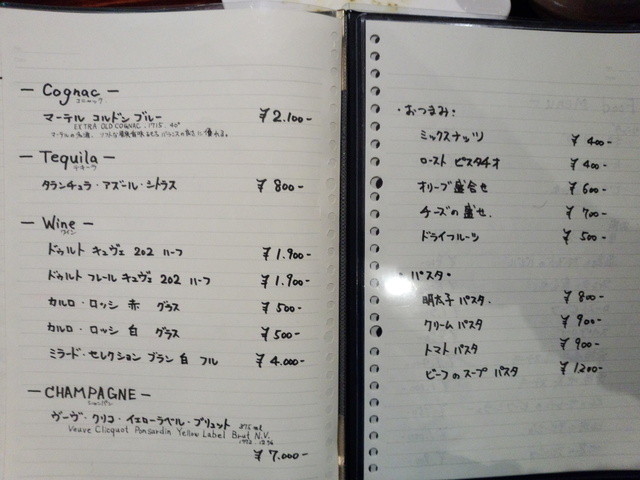 — Cognac —
コニャック
マーテル コルドン ブルー ¥2.100-
EXTRA OLD COGNAC. 1715. 40°
— Tequila —
テキーラ
タランチュラ・アズール・シトラス ¥800-
— Wine —
ワイン
ドゥルト キュヴェ 202 ハーフ ¥1.900-
ドゥルト フレール キュヴェ 202 ハーフ ¥1.900-
カルロ・ロッシ 赤 グラス ¥500-
カルロ・ロッシ 白 グラス ¥500-
ミラード・セレクション ブラン 白 フル ¥4.000-
— CHAMPAGNE —
シャンパン
ヴーヴ・クリコ・イエローラベル・ブリュット 375ml
Veuve Clicquot Ponsardin Yellow Label Brut N.V.
¥7.000-
・おつまみ:
ミックスナッツ ¥400-
ロースト ピスタチオ ¥400-
オリーブ盛合せ ¥600-
チーズの盛せ. ¥700-
ドライフルーツ ¥500-
・パスタ・
明太子 パスタ. ¥800-
クリーム パスタ ¥900-
トマト パスタ ¥900-
ビーフのスープ パスタ ¥1200-